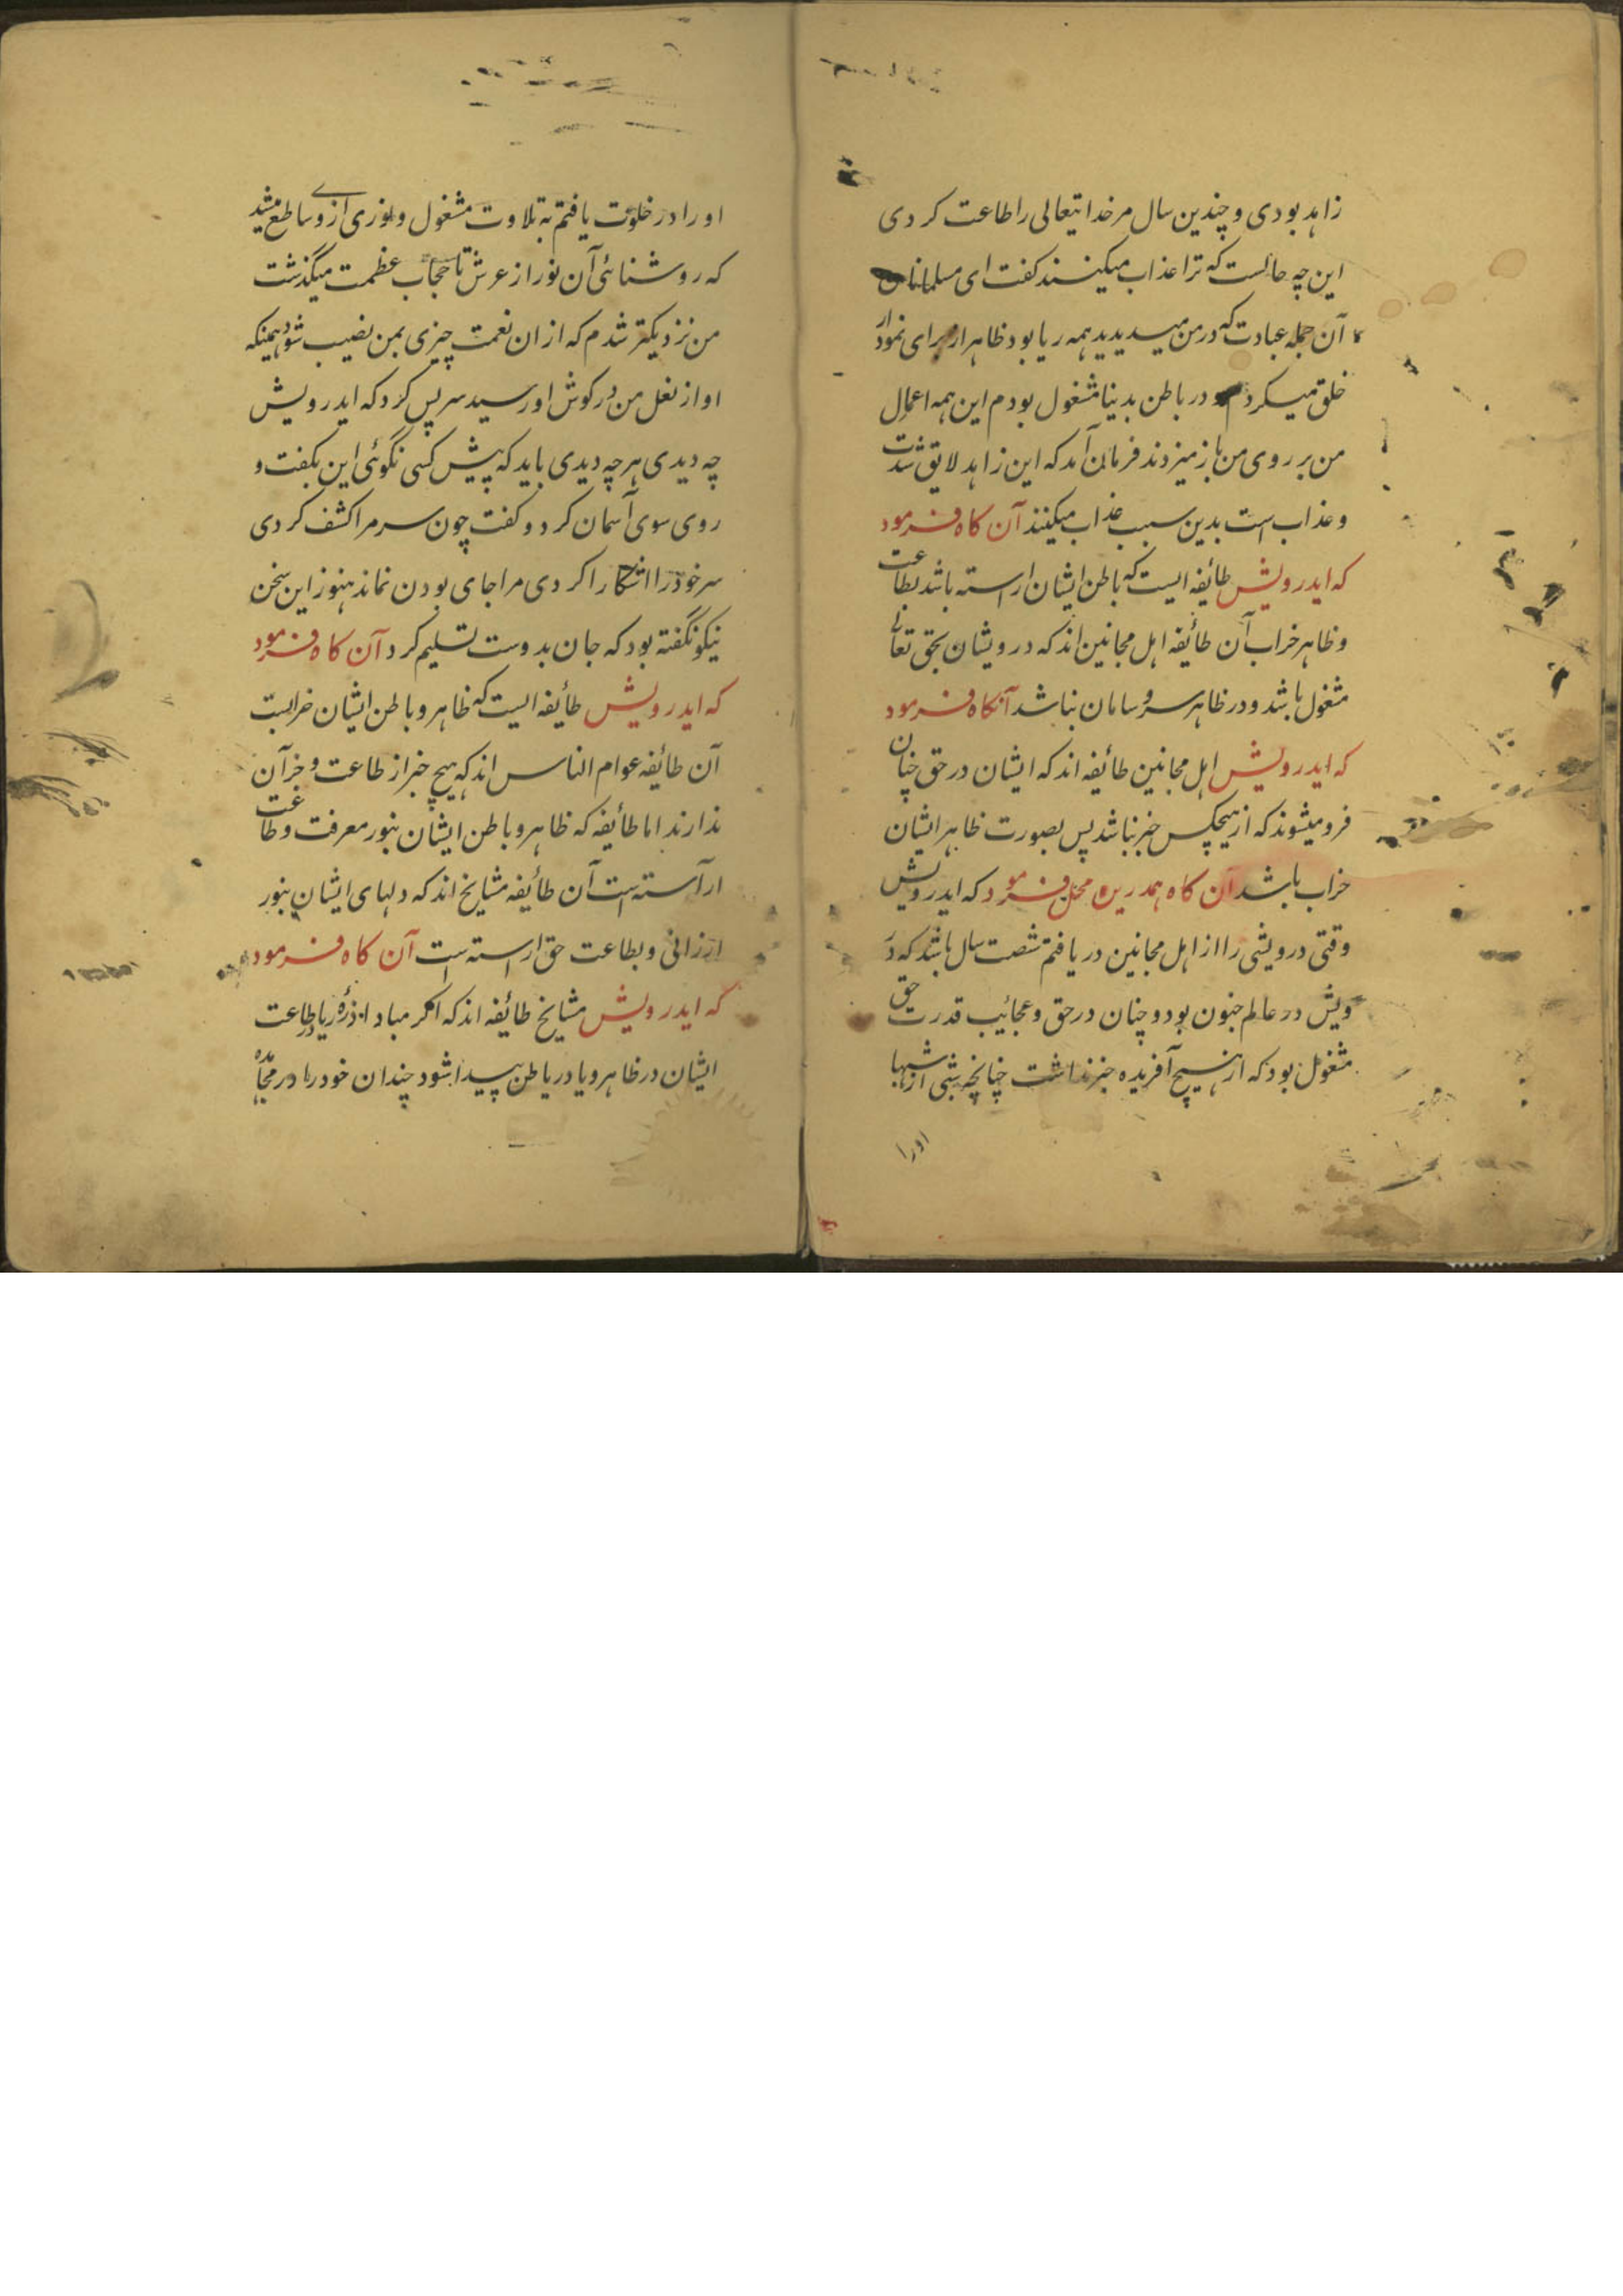 زاهد بودی و چندین سال مر خدایتعالی را طاعت کردی
این چه حالست که ترا عذاب میکنند کفت ای مسلمانان
آن جمله عبادت که در من میدیدید همه ریا بود ظاهر از برای نمودار
خلق میکردم و در باطن بدنیا مشغول بودم این همه اعمال
من بر روی من باز میزدند فرمان آمد که این زاهد لایق شدت
و عذاب است بدین سبب عذاب میکنند آن کاه فرمود
که ایدرویش طائفه ایست که باطن ایشان اراسته باشد بطاعت
و ظاهر خراب آن طائفه اهل مجانین اند که درویشان بحق تعالی
مشغول باشد و در ظاهر سر و سامان نباشد آنکاه فرمود
که ایدرویش اهل مجانین طائفه اند که ایشان در حق چنان
فرو میشوند که از هیچکس خبر نباشد پس بصورت ظاهر ایشان
خراب باشد آن کاه همدرین محل فرمود که ایدرویش
وقتی درویشی را از اهل مجانین دریافتم شصت سال باشد که در
ویش در عالم جنون بود و چنان در حق و عجائیب قدرت حق
مشغول بود که از هیچ آفریده خبر نداشت چنانچه شبی از شبها
اورا
اورا در خلوت یافتم به تلاوت مشغول و نوری از وی ساطع میشد
که روشنائی آن نور از عرش تا حجاب عظمت میگذشت
من نزدیکتر شدم که از ان نعمت چیزی بمن نصیب شود همینکه
اواز نعل من در کوش او رسید سر پس کرد که ایدرویش
چه دیدی هر چه دیدی باید که پیش کسی نگوئی این بکفت و
روی سوی آسمان کرد و کفت چون سر مرا کشف کردی
سر خود را اشکارا کردی مرا جای بودن نماند هنوز این سخن
نیکو نگفته بود که جان بدوست تسلیم کرد آن کاه فرمود
که ایدرویش طائفه ایست که ظاهر و باطن ایشان خرابست
آن طائفه عوام الناس اند که هیچ خبر از طاعت و جز آن
ندارند اما طائفه که ظاهر و باطن ایشان بنور معرفت و طاعت
ارآسته است آن طائفه مشایخ اند که دلهای ایشان بنور
ارزانی و بطاعت حق اراسته است آن کاه فرمود
که ایدرویش مشایخ طائفه اند که اکر مبادا ذرهٔ ریا در طاعت
ایشان در ظاهر و یا در باطن پیدا شود چندان خود را در مجاهده